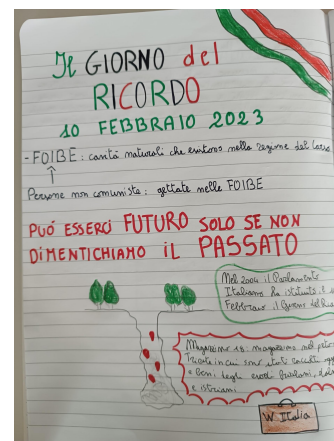 Il GIORNO del
RICORDO
10 FEBBRAIO 2023
- FOIBE: cavità naturali che esistono nella regione del Carso
Persone non comuniste: gettate nelle FOIBE
PUÓ ESSERCI FUTURO SOLO SE NON
DIMENTICHIAMO iL PASSATO
Nel 2004 il Parlamento
Italiano ha istituito il
Febbraio il Giorno del
Magazzino 18: magazzino nel
Trieste in cui sono stati raccolti
e beni degli esodi
e istriani
W Italia